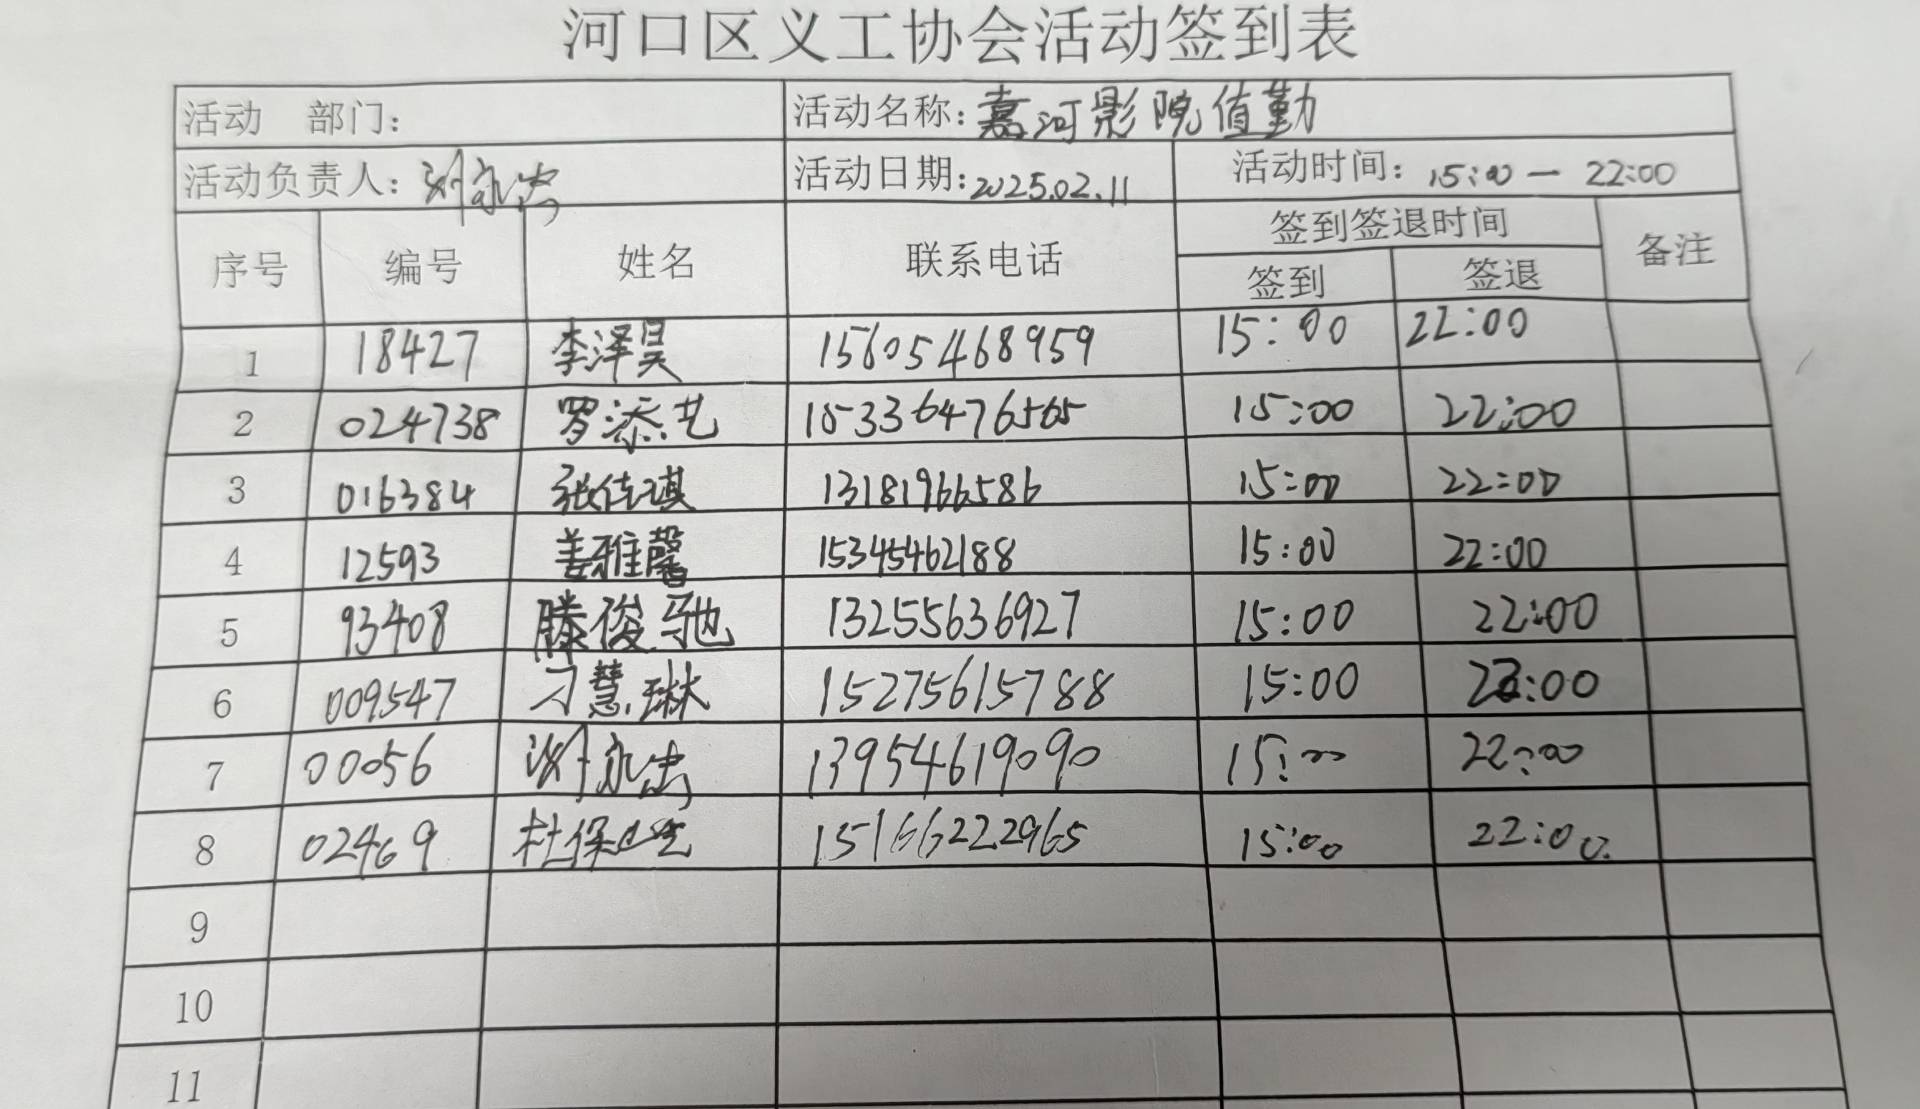 河口区义工协会活动签到表
活动 部门:
活动名称: 嘉河影院值勤
活动负责人: 刘永忠
活动日期: 2025.02.11
活动时间: 15:00 — 22:00
序号 编号 姓名 联系电话 签到签退时间 备注
签到 签退
1 18427 李泽昊 15605468959 15:00 22:00
2 024738 罗添艺 15336476565 15:00 22:00
3 016384 张佳琪 13181966586 15:00 22:00
4 12593 姜雅馨 15345462188 15:00 22:00
5 93408 滕俊驰 13255636927 15:00 22:00
6 009547 刁慧琳 15275615788 15:00 22:00
7 00056 刘永忠 13954619090 15:00 22:00
8 02469 杜保学 15166222965 15:00 22:00.
9
10
11